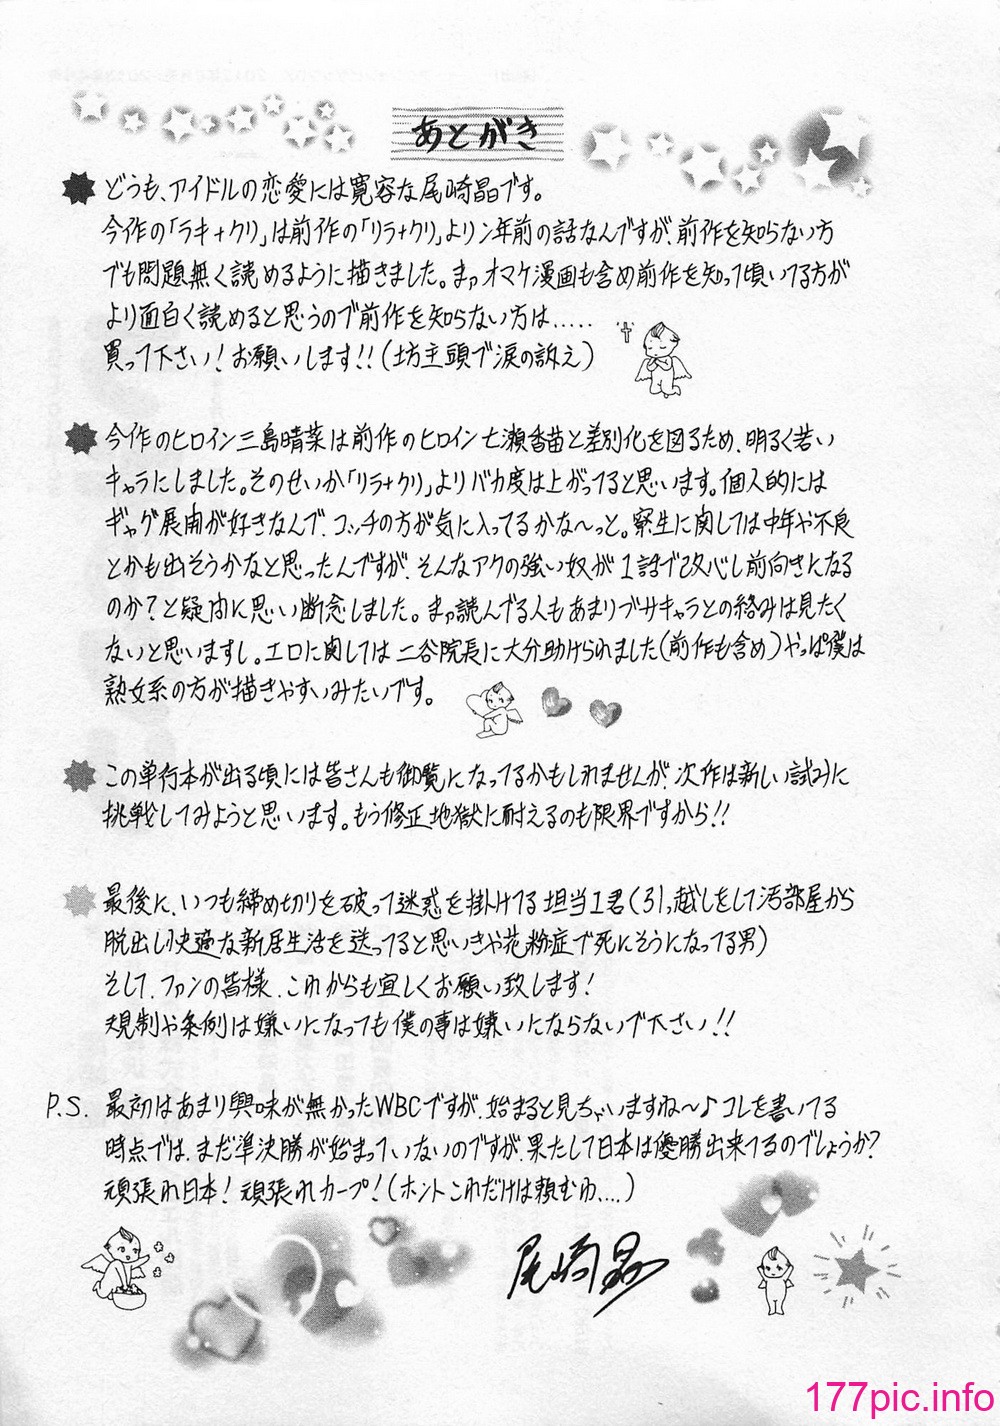 あとがき
どうも、アイドルの恋愛には寛容な尾崎晶です。
今作の「ラキ+クリ」は前作の「リラ+クリ」より〉年前の話なんですが、前作を知らない方
でも問題無く読めるように描きました。まァオマケ漫画も含め前作を知って頂いてる方が
より面白く読めると思うので前作を知らない方は.....
買って下さい!お願いします!!(坊主頭で涙の訴え)
今作のヒロイン三島晴菜は前作のヒロイン七瀬香苗と差別化を図るため、明るく若い
キャラにしました。そのせいか「リラ+クリ」よりバカ度は上がってると思います。個人的には
ギャグ展開が好きなんで、コッチの方が気に入ってるかな〜っと。寮生に関しては中年や不良
とかも出そうかなと思ったんですが、そんなアクの強い奴が1話で改心し前向きになる
のか?と疑問に思い断念しました。まァ読んでる人もあまりブサキャラとの絡みは見たく
ないと思いますし。エロに関しては二谷院長に大分助けられました(前作も含め)やっぱ僕は
熟女系の方が描きやすいみたいです。
この単行本が出る頃には皆さんも御覧になってるかもしれませんが、次作は新しい試みに
挑戦してみようと思います。もう修正地獄に耐えるのも限界ですから!!
最後に、いつも締め切りを破って迷惑を掛けてる担当I君(引っ越しをして汚部屋から
脱出し快適な新居生活を送ってると思いきや花粉症で死にそうになってる男)
そして、ファンの皆様、これからも宜しくお願い致します!
規制や条例は嫌いになっても僕の事は嫌いにならないで下さい!!
P.S. 最初はあまり興味が無かったWBCですが、始まると見ちゃいますね〜♪コレを書いてる
時点では、まだ準決勝が始まっていないのですが、果たして日本は優勝出来てるのでしょうか?
頑張れ日本!頑張れカープ!(ホントこれだけは頼むわ....)
尾崎晶
177pic.info